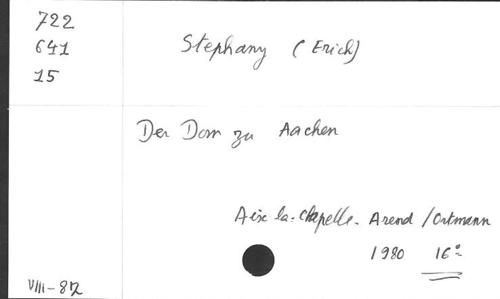 722
641
15
Stephany (Erich)
Der Dom zu Aachen
Aix-la-Chapelle. Arend / Ortmann
1980 16°
VIII-82